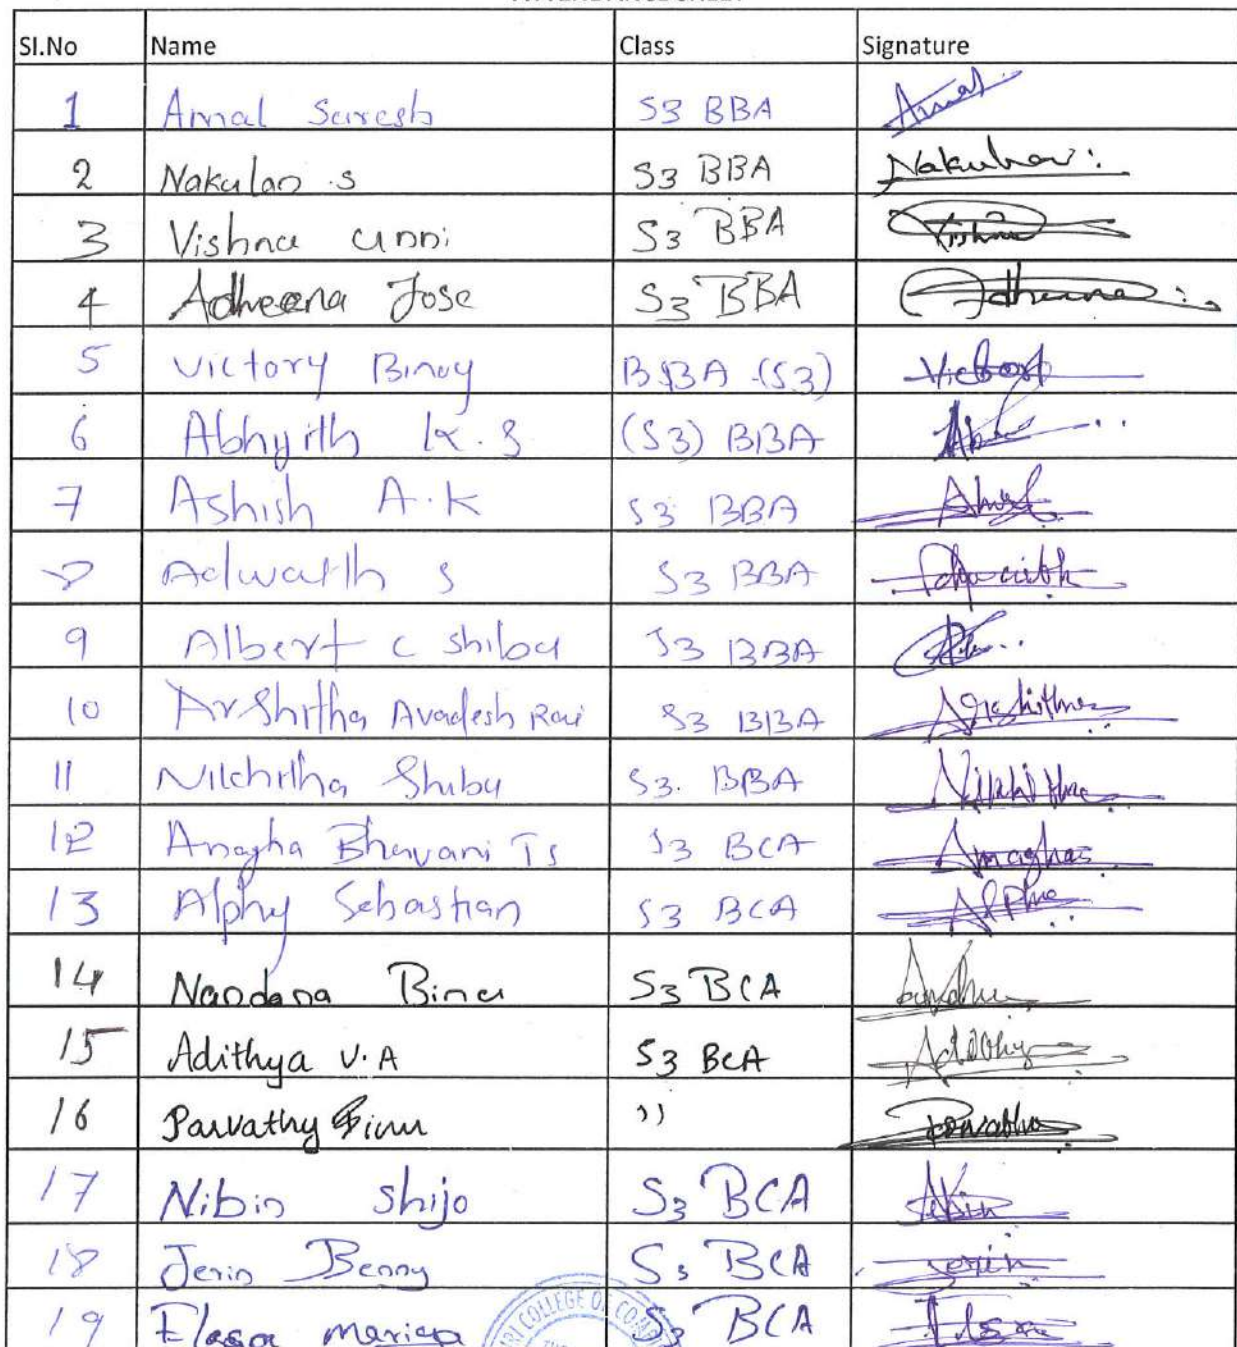 Sl.No Name Class Signature
1 Amal Suresh S3 BBA Amal
2 Nakulan .S S3 BBA Nakulan
3 Vishnu Unni S3 BBA Vishnu
4 Adheena Jose S3 BBA Adheena
5 Victory Binoy BBA (S3) Victory
6 Abhyith K.S (S3) BBA
7 Ashish A.K S3 BBA
8 Adwaith S S3 BBA Adwaith
9 Albert C Shibu S3 BBA
10 Arshitha Avadesh Rai S3 BBA Arshitha
11 Nikhitha Shibu S3. BBA Nikhitha
12 Anagha Bhavani TS S3 BCA Anagha
13 Alphy Sebastian S3 BCA
14 Nandana Binu S3 BCA
15 Adithya V.A S3 BCA Adithya
16 Parvathy Binu " Parvathy
17 Nibin Shijo S3 BCA Nibin
18 Jerin Benny S3 BCA Jerin
19 Elasa Mariya S3 BCA
COLLEGE OF